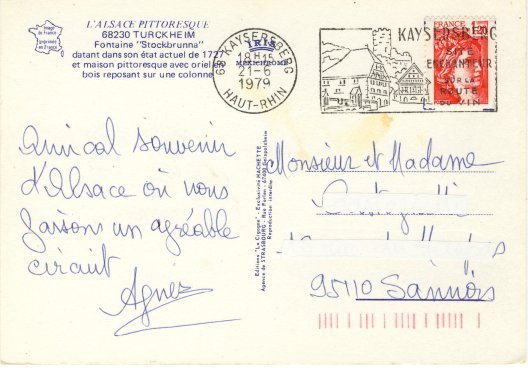 L'ALSACE PITTORESQUE
68230 TURCKHEIM
Fontaine "Stockbrunna"
datant dans son état actuel de 1727
et maison pittoresque avec oriel en
bois reposant sur une colonne
Image
de France
imprimée
en France
IRIS
MEXICHROME
68 KAYSERSBERG
18H15
21-6
1979
HAUT-RHIN
KAYSERSBERG
SITE
ENCHANTEUR
SUR LA
ROUTE
DU VIN
FRANCE
1,20
Amical souvenir
d'Alsace où nous
faisons un agréable
circuit
Agnez
Editions "La Cigogne" - Exclusive HACHETTE
Agence de STRASBOURG - Rue
Reproduction interdite
Monsieur et Madame
95110 Sannois